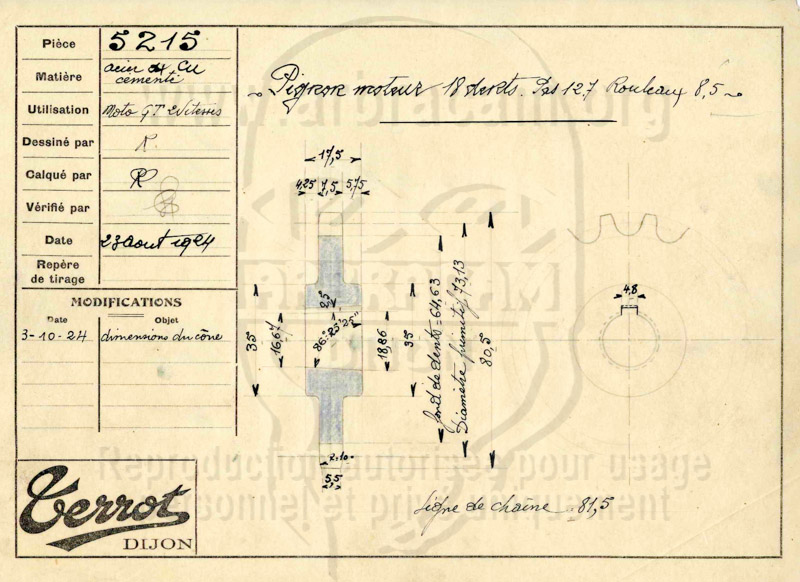 Pièce 5215
Matière acier CU
cementé
Utilisation Moto GT 2 Vitesses
Dessiné par R.
Calqué par R
Vérifié par
Date 23 août 1924
Repère
de tirage
MODIFICATIONS
Date Objet
3-10-24 dimensions du cône
Terrot
DIJON
Pignon moteur 18 dents. Pas 12.7 Rouleaux 8,5
17,5
4,25 7,5 5,75
0,5
35
16,67
86°25'25"
18,86
35
fond de dents = 64,63
Diamètre primitif 73,13
80,5
2.10
5,5
4,8
Ligne de chaine = 81,5
www.arbracam.org
ARBRACAM
Reproduction autorisée pour usage
personnel et privé uniquement